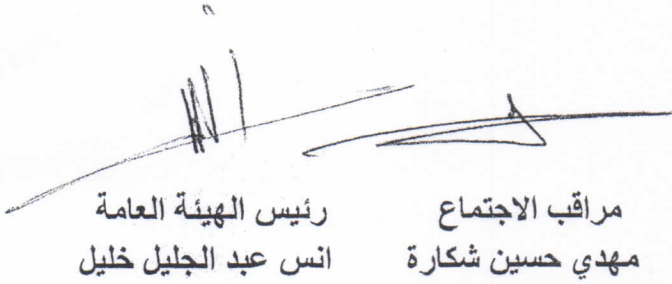 مراقب الاجتماع
مهدي حسين شكارة
رئيس الهيئة العامة
انس عبد الجليل خليل